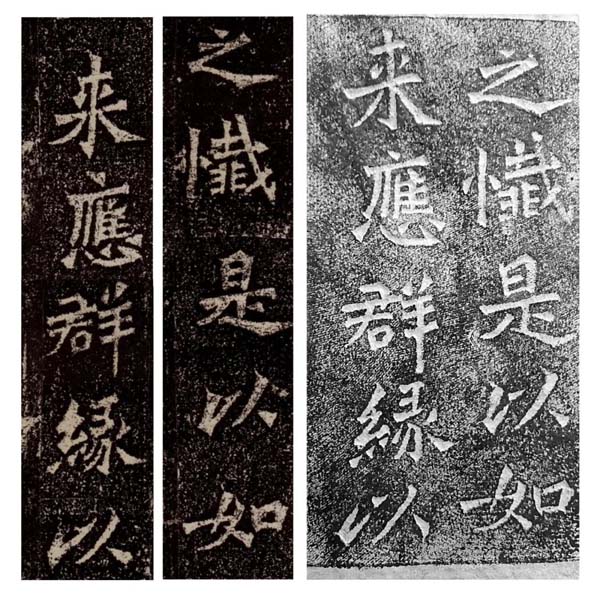 之懺是以如
来應群緣以
之懺是以如
来應群緣以